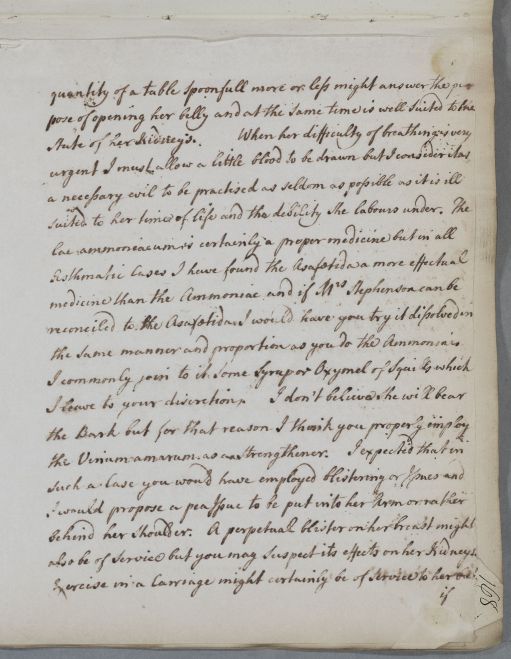 quantity of a table spoonfull more or less might answer the pur
pose of opening her belly and at the same time is well suited to the
State of her Kidneys. When her difficulty of breathing is very
urgent I must allow a little blood to be drawn but I consider it as
a necessary evil to be practised as seldom as possible as it is ill
suited to her time of life and the debility she labours under. The
Lac ammoneacum is certainly a proper medicine but in all
Asthmatic Cases I have found the Asafœtida a more effectual
medicine than the Ammoniac and if Mrs Stephenson can be
reconciled to the Asafœtida I would have you try it dissolved in
the same manner and proportion as you do the Ammonia's
I commonly join to it some Syrup or Oxymel of Squills which
I leave to your discretion. I don't believe she will bear
the Bark but for that reason I think you properly employ
the Vinum amarum as a strengthener. I expected that in
such a Case you would have employed blistering or Issues and
I would propose a pea Issue to be put into her Arm or rather
behind her Shoulder. A perpetual blister on her breast might
also be of Service but you may suspect its effects on her Kidneys.
Exercise in a Carriage might certainly be of service to her and
if
168